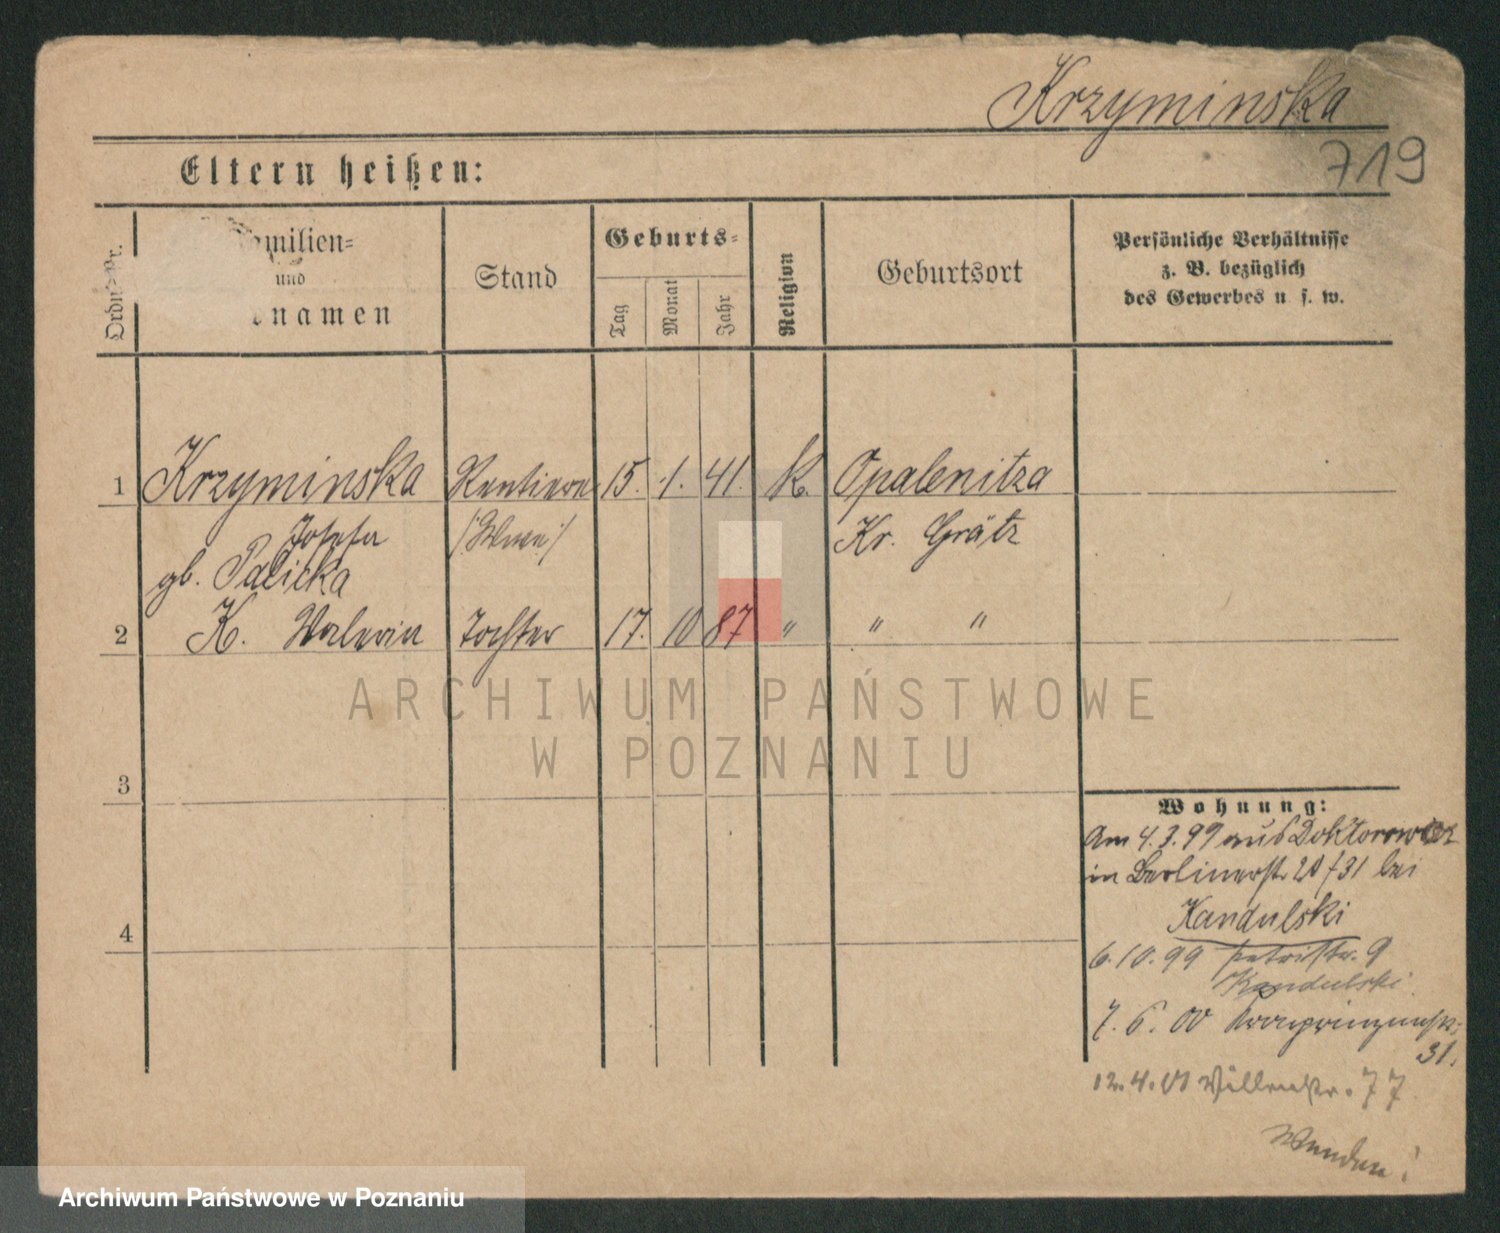 Krzyminska
719
Eltern heißen:
Ordn.-Nr.
Familien-
und
namen
Stand
Geburts-
Tag
Monat
Jahr
Religion
Geburtsort
Persönliche Verhältnisse
z. B. bezüglich
des Gewerbes u. s. w.
1 Krzyminska Rentiere 15. 1. 41. k. Opalenitza
Josefa /Wwe/ Kr. Grätz
gb. Palicka
2 K. Valeria Tochter 17. 10 87 " " "
3
4
Wohnung:
Am 4.3.99 aus Doktorowicz
in Berlinerstr 20 /31 bei
Kandulski
6.10.99 Petristr. 9
Kandulski
7.6.00 Kronprinzenstr.
31.
12.4.01 77
Wenden!
ARCHIWUM PAŃSTWOWE
W POZNANIU
Archiwum Państwowe w Poznaniu